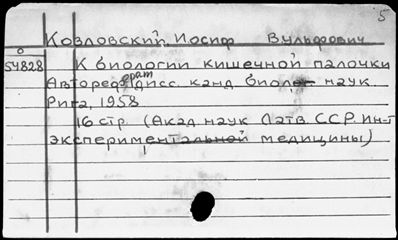 5
Козловский, Иосиф Вульфович
О
54828 К биологии кишечной палочки
Автореферат дисс. канд биолог наук
Рига, 1958
16 стр. (Акад. наук Латв ССР. Ин-т
экспериментальной медицины)